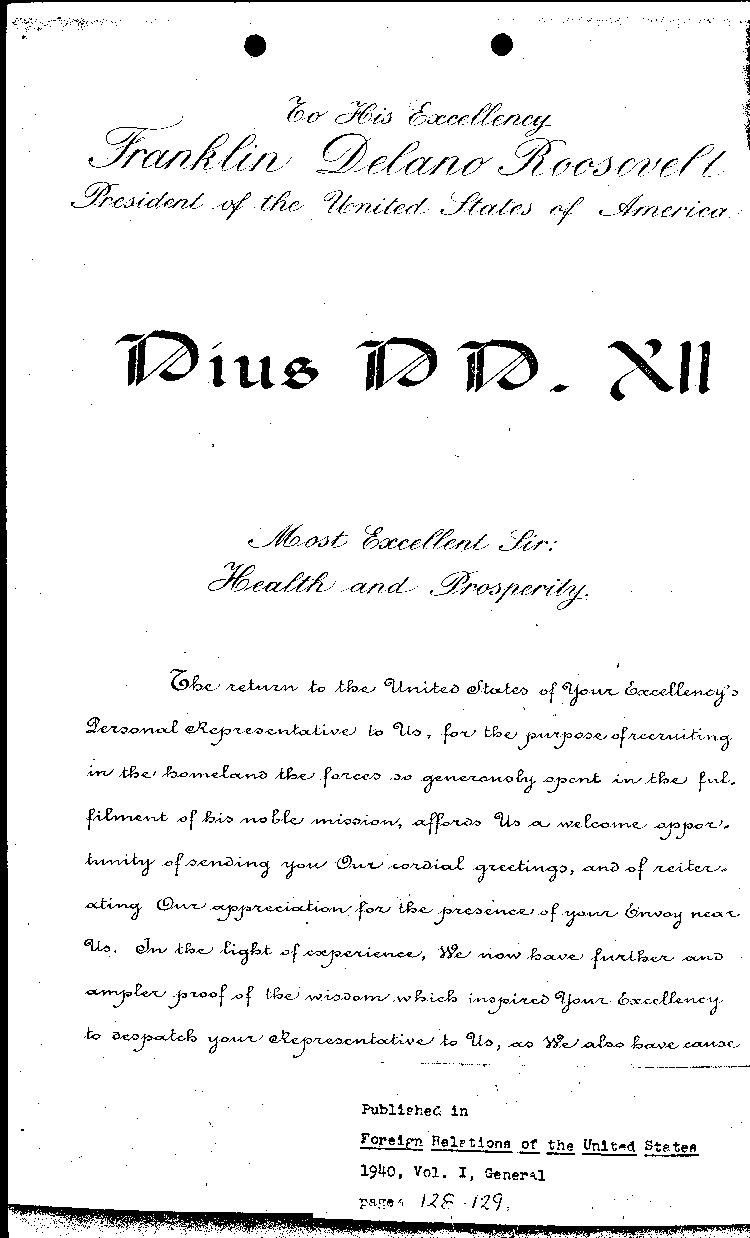 To His Excellency
Franklin Delano Roosevelt
President of the United States of America
Pius PP. XII
Most Excellent Sir:
Health and Prosperity.
The return to the United States of Your Excellency's
Personal Representative to Us, for the purpose of recruiting
in the homeland the forces so generously spent in the ful-
filment of his noble mission, affords Us a welcome oppor-
tunity of sending you Our cordial greetings, and of reiter-
ating Our appreciation for the presence of your Envoy near
Us. In the light of experience, We now have further and
ampler proof of the wisdom which inspired Your Excellency
to despatch your Representative to Us, as We also have cause
Published in
Foreign Relations of the United States
1940, Vol. I, General
pages 128-129.